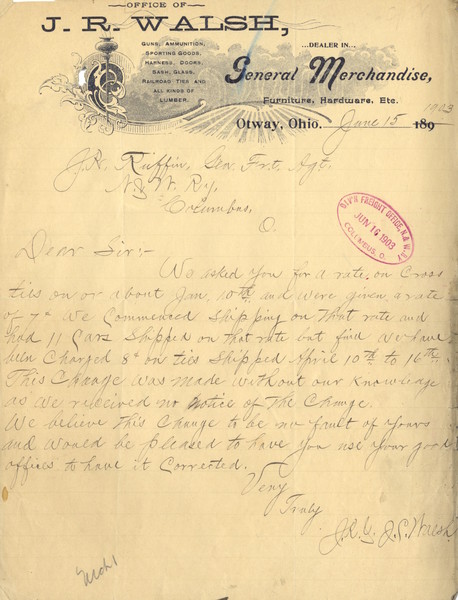 OFFICE OF
J. R. WALSH,
GUNS, AMMUNITION,
SPORTING GOODS,
HARNESS, DOORS,
SASH, GLASS,
RAILROAD TIES AND
ALL KINDS OF
LUMBER.
...DEALER IN...
General Merchandise,
Furniture, Hardware, Etc.
Otway, Ohio. June 15 189 1903
J. H. Ruffin, Gen. Frt. Agt.
N. & W. Ry.
Columbus,
O.
DIV'N FREIGHT OFFICE, N. & W. RY
JUN 16 1903
COLUMBUS, O.
Dear Sir:-
We asked you for a rate on Cross
ties on or about Jan. 10th and were given a rate
of 7¢ We Commenced Shipping on That rate and
had 11 Cars Shipped on that rate but find we have
been Charged 8¢ on ties Shipped April 10th to 16th.
This Change was made without our Knowledge
as we received no notice of The Change.
We believe this Change to be no fault of yours
and would be pleased to have you use your good
offices to have it Corrected.
Very
Truly
J. R. & J. S. Walsh